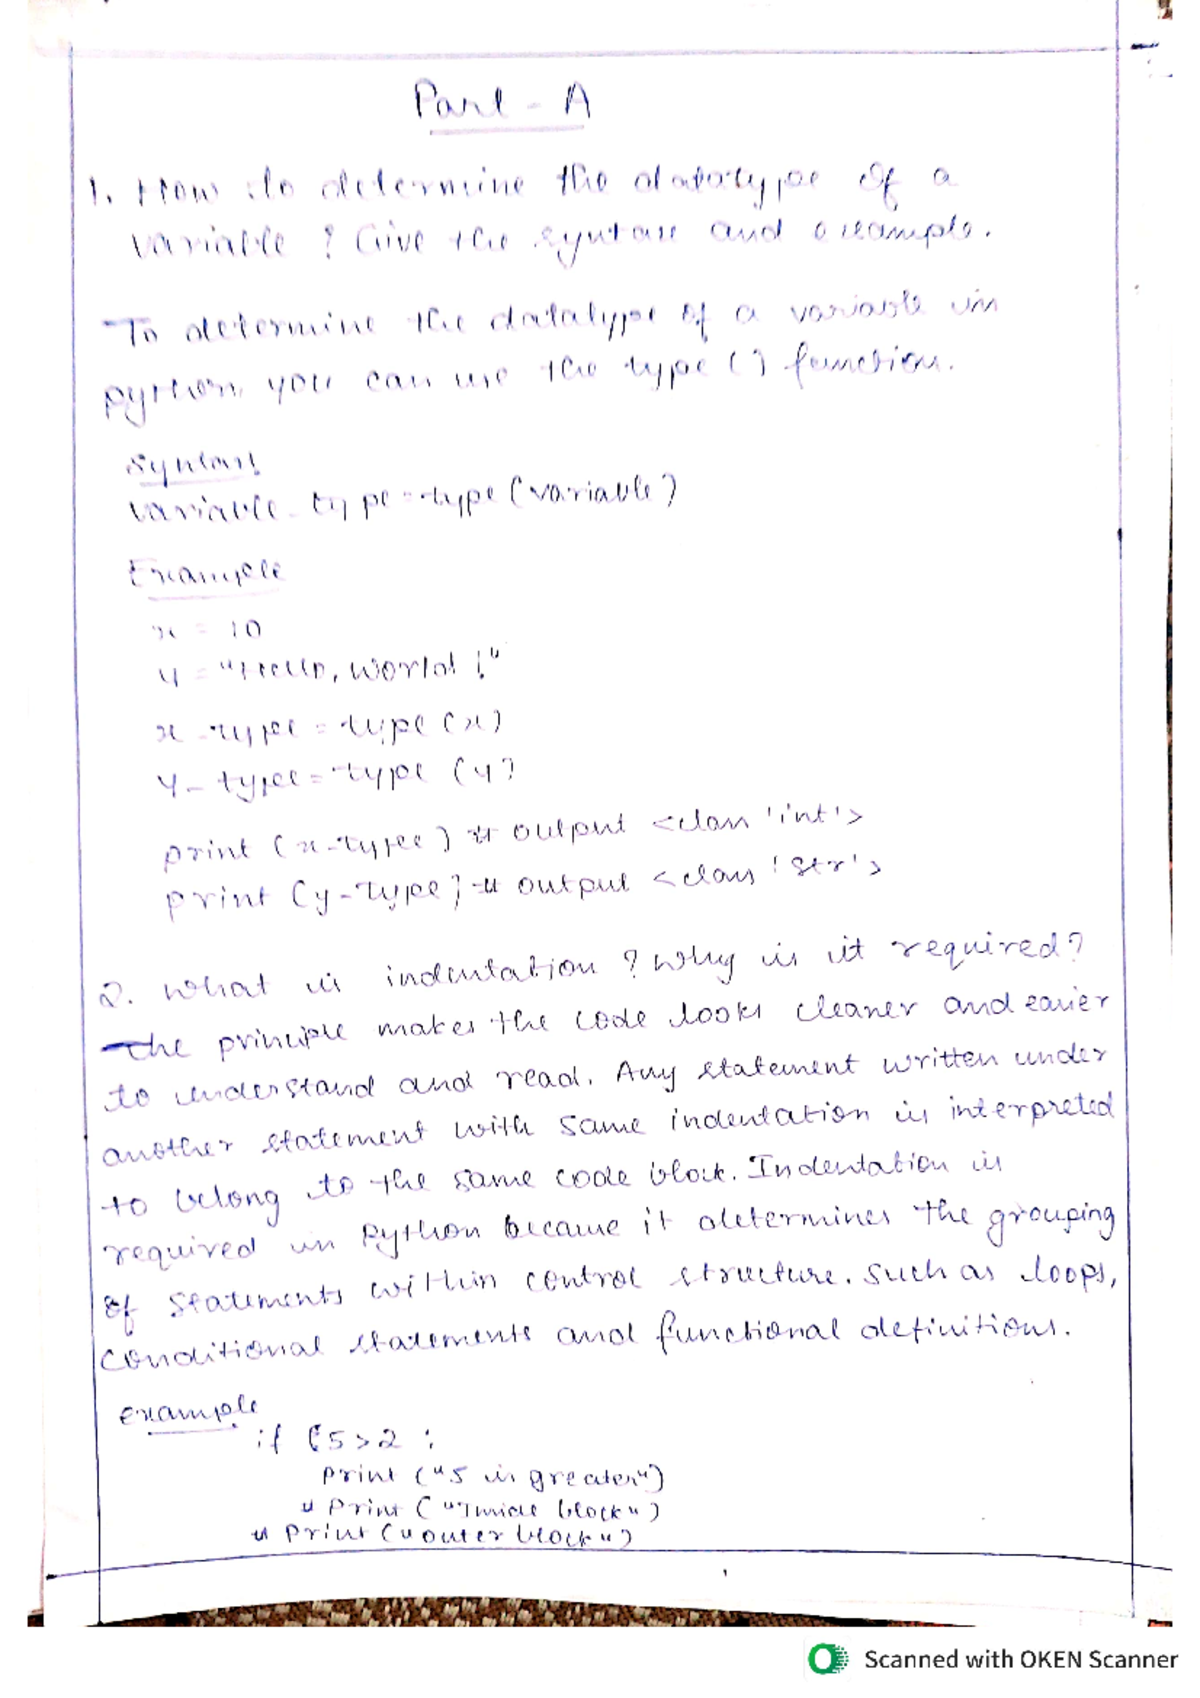 Part - A
1. How to determine the datatype of a
variable ? Give the syntax and example.
To determine the datatype of a variable in
python, you can use the type () function.
Syntax:
variable_type = type (variable)
Example
x = 10
y = "Hello, World !"
x_type = type (x)
y_type = type (y)
print (x_type) # output <class 'int'>
print (y_type) # output <class 'str'>
2. What is indentation ? Why is it required?
The principle makes the code looks cleaner and easier
to understand and read. Any statement written under
another statement with same indentation is interpreted
to belong to the same code block. Indentation is
required in Python because it determines the grouping
of statements within control structure. Such as loops,
conditional statements and functional definitions.
Example
if (5>2 :
print ("5 is greater")
# print ("Inside block")
# print ("outer block")
Scanned with OKEN Scanner